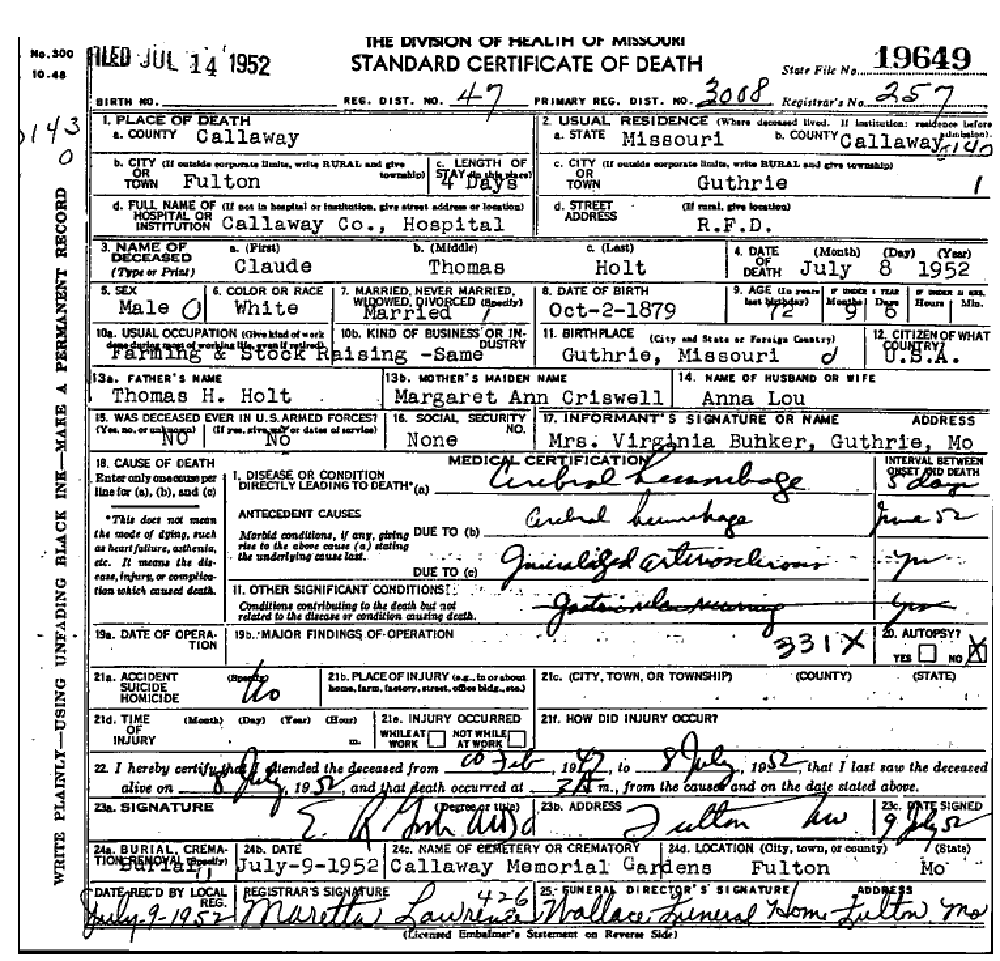 THE DIVISION OF HEALTH OF MISSOURI
STANDARD CERTIFICATE OF DEATH
No. 300
10-48
FILED JUL 14 1952
State File No. 19649
BIRTH NO. REG. DIST. NO. 47 PRIMARY REG. DIST. NO. 3008 Registrar's No. 257
WRITE PLAINLY—USING UNFADING BLACK INK—MAKE A PERMANENT RECORD
0143
0
1. PLACE OF DEATH
a. COUNTY Callaway
2. USUAL RESIDENCE (Where deceased lived. If institution: residence before admission).
a. STATE Missouri b. COUNTY Callaway
b. CITY (If outside corporate limits, write RURAL and give township) OR TOWN Fulton
c. LENGTH OF STAY (in this place) 4 Days
c. CITY (If outside corporate limits, write RURAL and give township) OR TOWN Guthrie 1
d. FULL NAME OF (If not in hospital or institution, give street address or location) HOSPITAL OR INSTITUTION Callaway Co., Hospital
d. STREET ADDRESS (If rural, give location) R.F.D.
3. NAME OF DECEASED (Type or Print) a. (First) Claude b. (Middle) Thomas c. (Last) Holt
4. DATE OF DEATH (Month) (Day) (Year) July 8 1952
5. SEX Male 0
6. COLOR OR RACE White
7. MARRIED, NEVER MARRIED, WIDOWED, DIVORCED (Specify) Married 1
8. DATE OF BIRTH Oct-2-1879
9. AGE (In years last birthday) 72 IF UNDER 1 YEAR Months 9 Days 6 IF UNDER 24 HRS. Hours Min.
10a. USUAL OCCUPATION (Give kind of work done during most of working life, even if retired) Farming & Stock Raising
10b. KIND OF BUSINESS OR INDUSTRY -Same
11. BIRTHPLACE (City and State or Foreign Country) Guthrie, Missouri
12. CITIZEN OF WHAT COUNTRY? U.S.A.
13a. FATHER'S NAME Thomas H. Holt
13b. MOTHER'S MAIDEN NAME Margaret Ann Criswell
14. NAME OF HUSBAND OR WIFE Anna Lou
15. WAS DECEASED EVER IN U.S. ARMED FORCES? (Yes, no, or unknown) NO (If yes, give war or dates of service) No
16. SOCIAL SECURITY NO. None
17. INFORMANT'S SIGNATURE OR NAME ADDRESS
Mrs. Virginia Buhker, Guthrie, Mo
18. CAUSE OF DEATH
Enter only one cause per line for (a), (b), and (c)
*This does not mean the mode of dying, such as heart failure, asthenia, etc. It means the disease, injury, or complication which caused death.
MEDICAL CERTIFICATION
INTERVAL BETWEEN ONSET AND DEATH
I. DISEASE OR CONDITION DIRECTLY LEADING TO DEATH* (a) Cerebral hemorrhage 5 days
ANTECEDENT CAUSES
Morbid conditions, if any, giving rise to the above cause (a) stating the underlying cause last.
DUE TO (b) Cerebral hemorrhage June 52
DUE TO (c) Generalized arteriosclerosis yrs
II. OTHER SIGNIFICANT CONDITIONS
Conditions contributing to the death but not related to the disease or condition causing death.
19a. DATE OF OPERATION
19b. MAJOR FINDINGS OF OPERATION
331X
20. AUTOPSY? YES NO X
21a. ACCIDENT SUICIDE HOMICIDE (Specify) No
21b. PLACE OF INJURY (e.g., in or about home, farm, factory, street, office bldg., etc.)
21c. (CITY, TOWN, OR TOWNSHIP) (COUNTY) (STATE)
21d. TIME OF INJURY (Month) (Day) (Year) (Hour) m.
21e. INJURY OCCURRED WHILE AT WORK NOT WHILE AT WORK
21f. HOW DID INJURY OCCUR?
22. I hereby certify that I attended the deceased from Feb, 1947, to 8 July, 1952, that I last saw the deceased
alive on 8 July, 1952, and that death occurred at m., from the causes and on the date stated above.
23a. SIGNATURE (Degree or title)
23b. ADDRESS Fulton Mo
23c. DATE SIGNED 9 July 52
24a. BURIAL, CREMATION, REMOVAL (Specify) Burial
24b. DATE July-9-1952
24c. NAME OF CEMETERY OR CREMATORY Callaway Memorial Gardens
24d. LOCATION (City, town, or county) (State) Fulton Mo
DATE REC'D BY LOCAL REG. July-9-1952
REGISTRAR'S SIGNATURE 426 Maretta Lawrence
25. FUNERAL DIRECTOR'S SIGNATURE ADDRESS
Wallace Funeral Home Fulton, Mo
(Licensed Embalmer's Statement on Reverse Side)